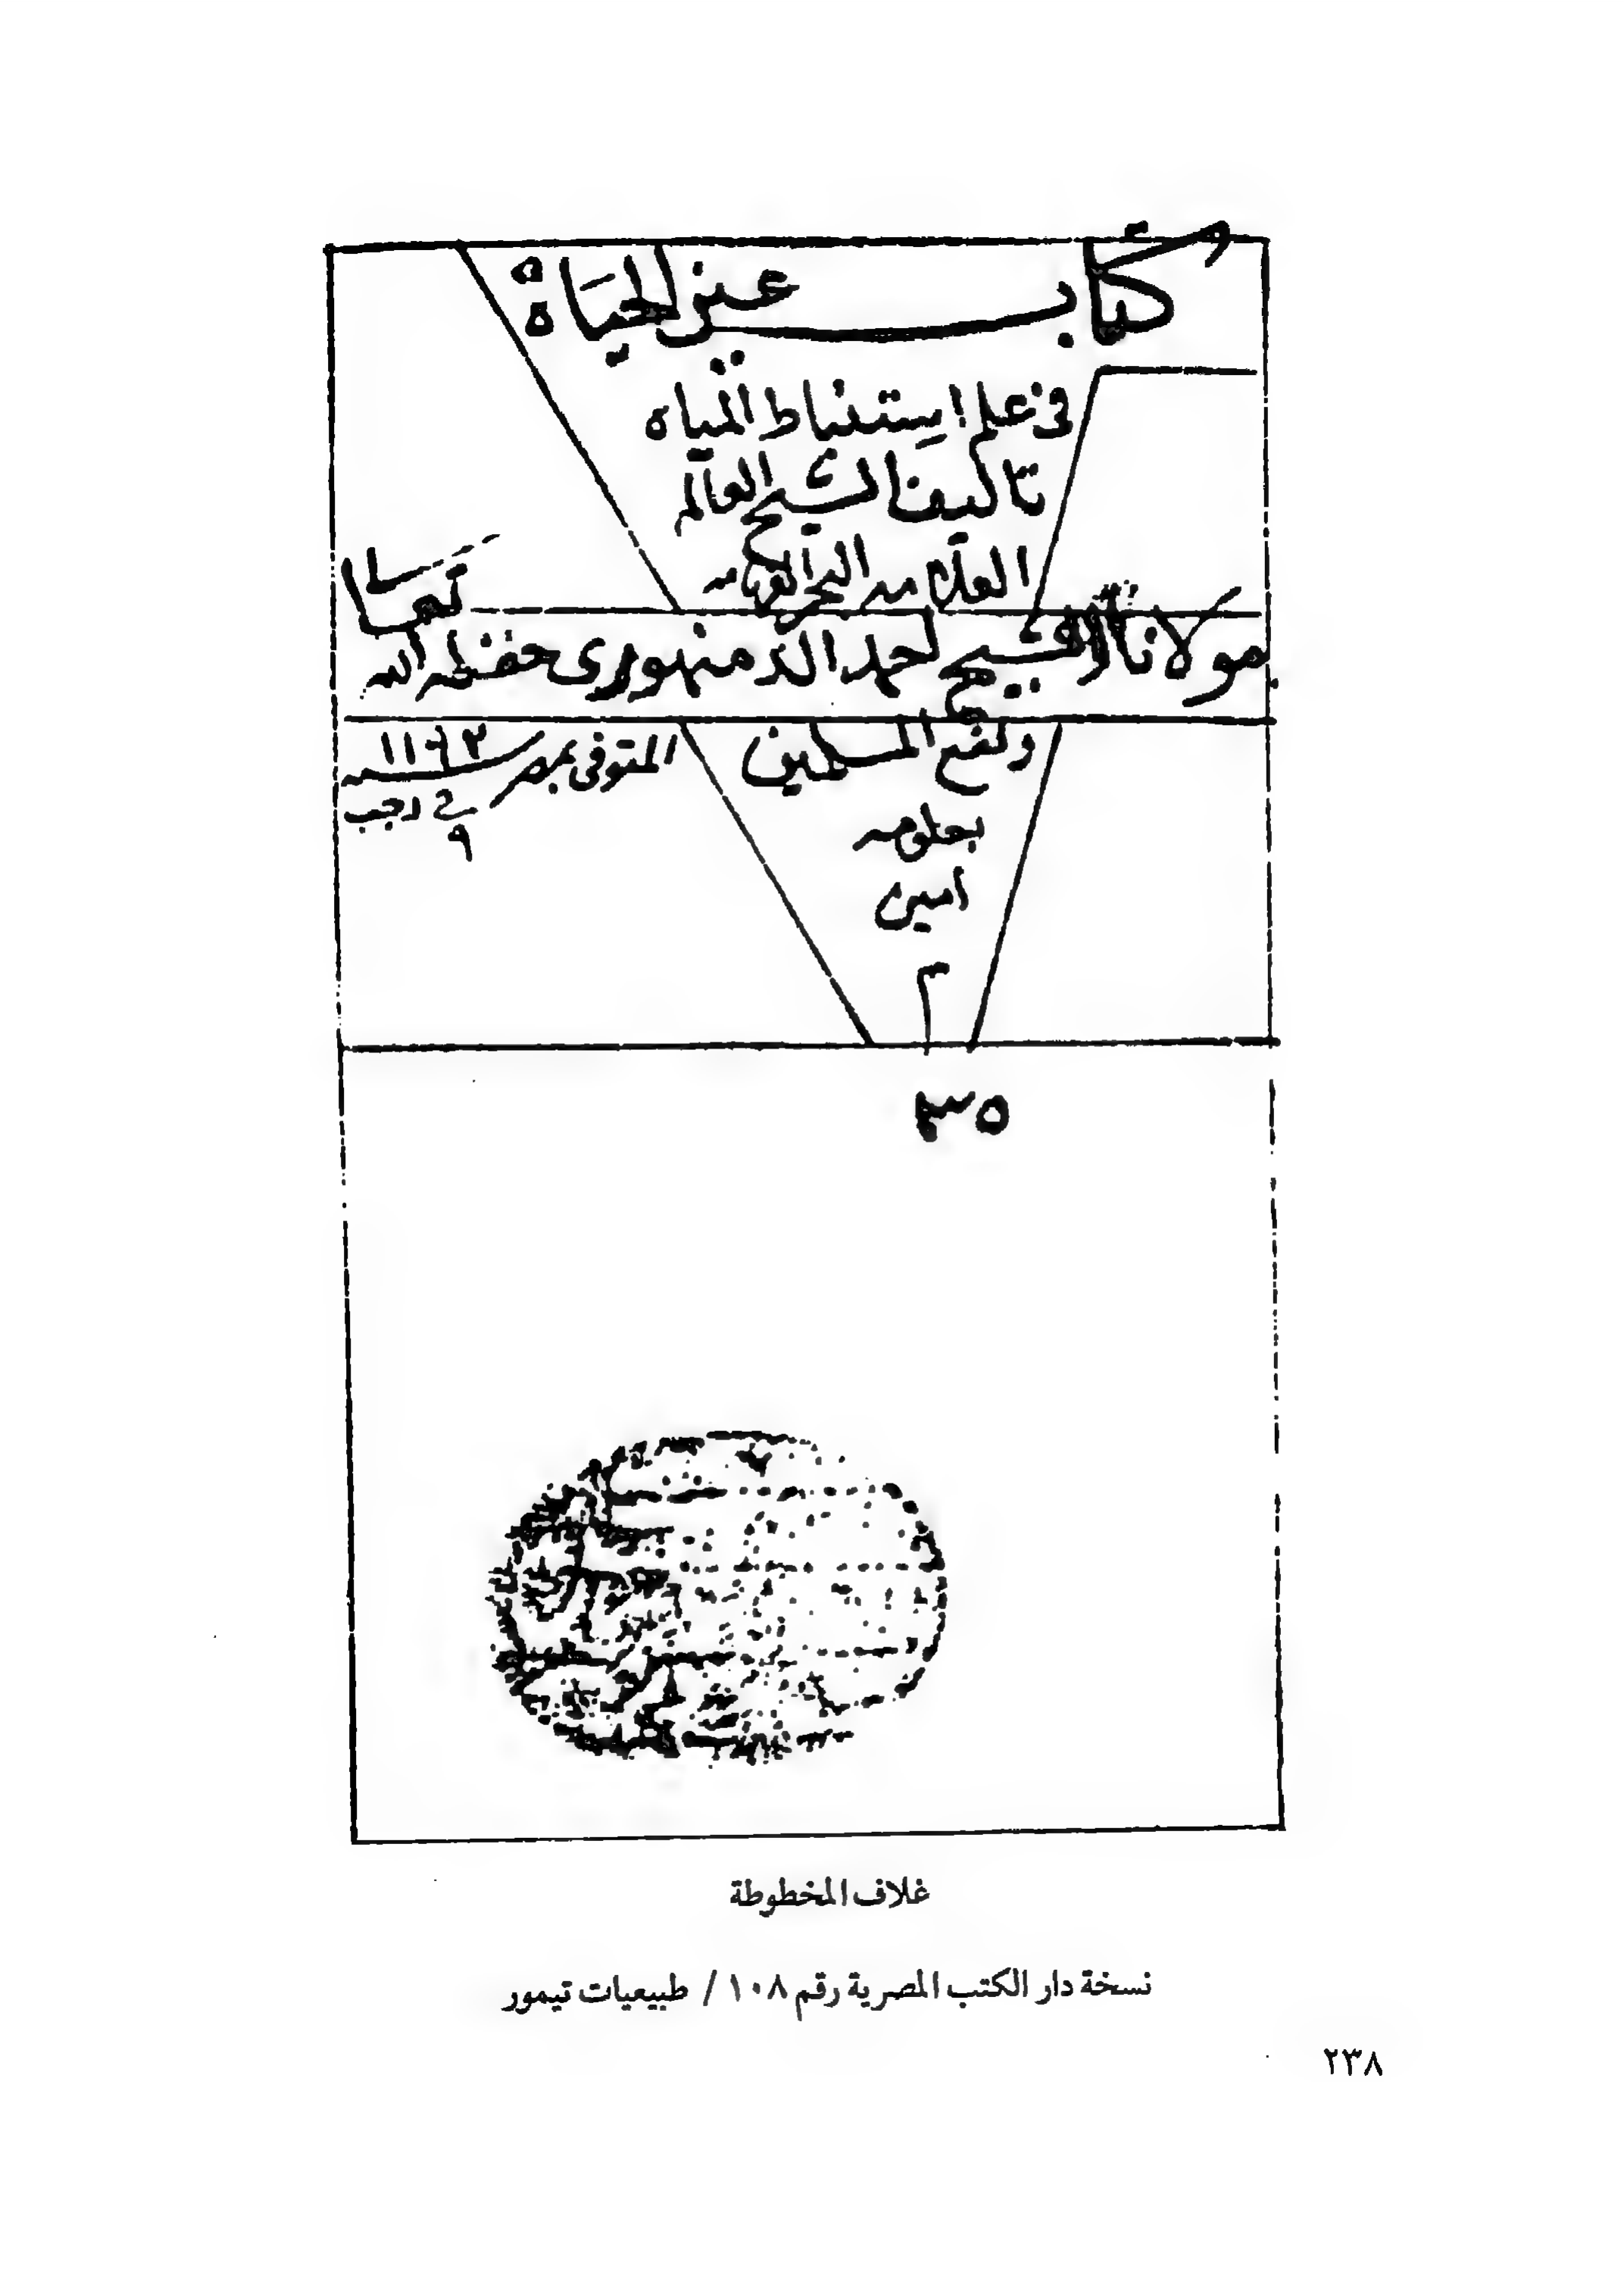 كتاب عين الحياة
في علم استنباط المياه
تأليف الشيخ العالم
العلامه البحر الفهامه
مولانا الشيخ احمد الدمنهوري حفظه الله تعالى
ونفع المسلمين
بعلومه
امين
م
المتوفى بمصر سنه ١١٩٢
في ٩ رجب
٣٥
غلاف المخطوطة
نسخة دار الكتب المصرية رقم ١٠٨ / طبيعيات تيمور
٢٣٨